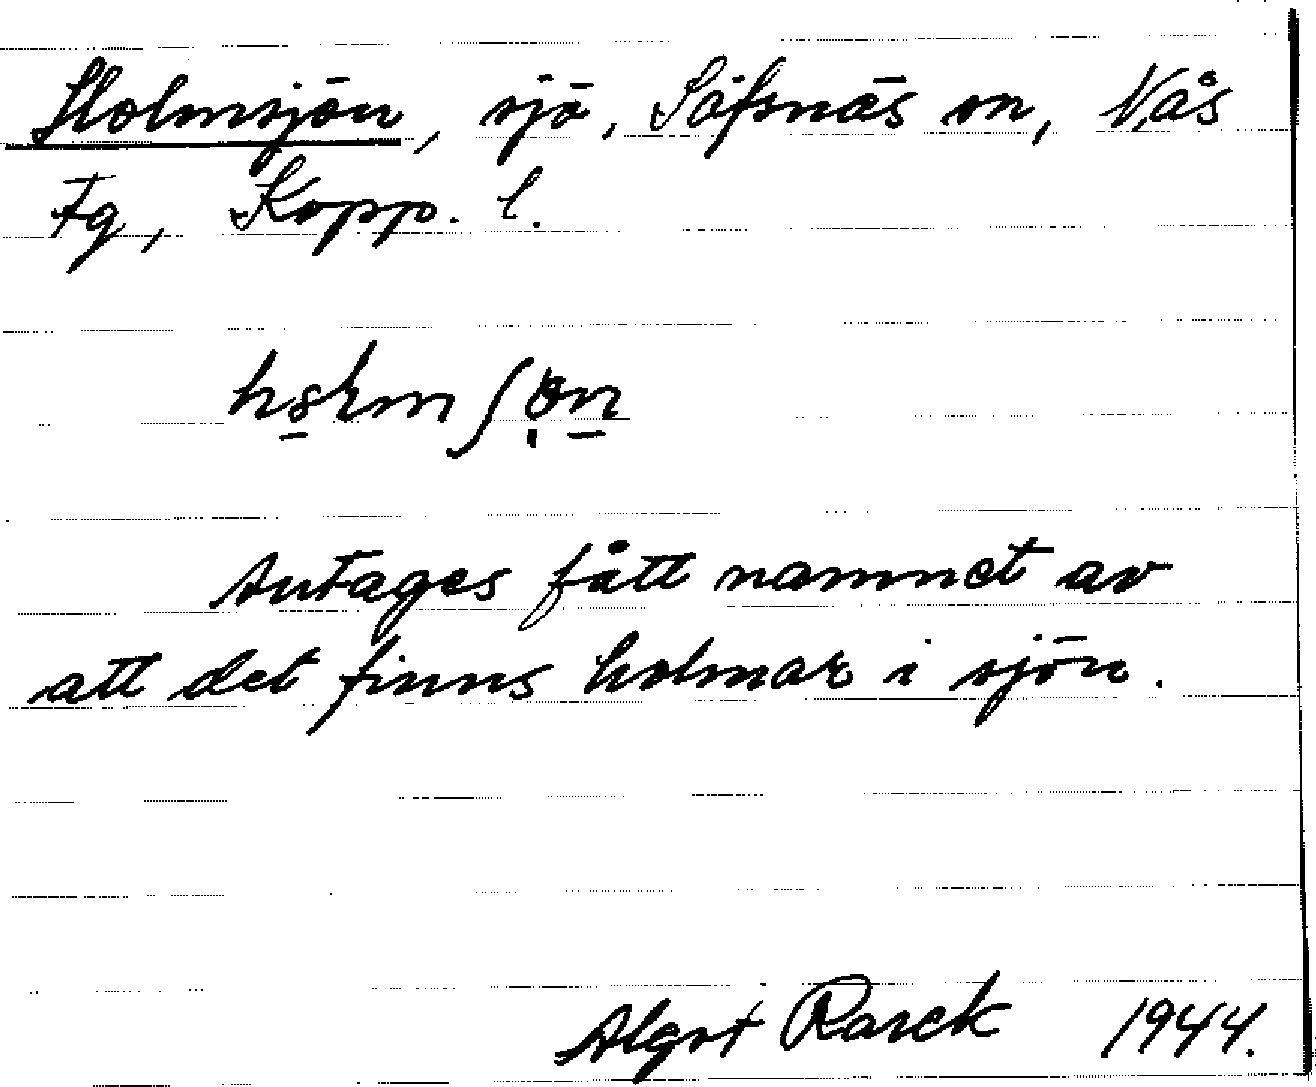 Holmsjön, sjö, Säfsnäs sn, Nås
Fg, Kopp. l.
Antages fått namnet av
att det finns holmar i sjön.
Algot Rarck 1944.